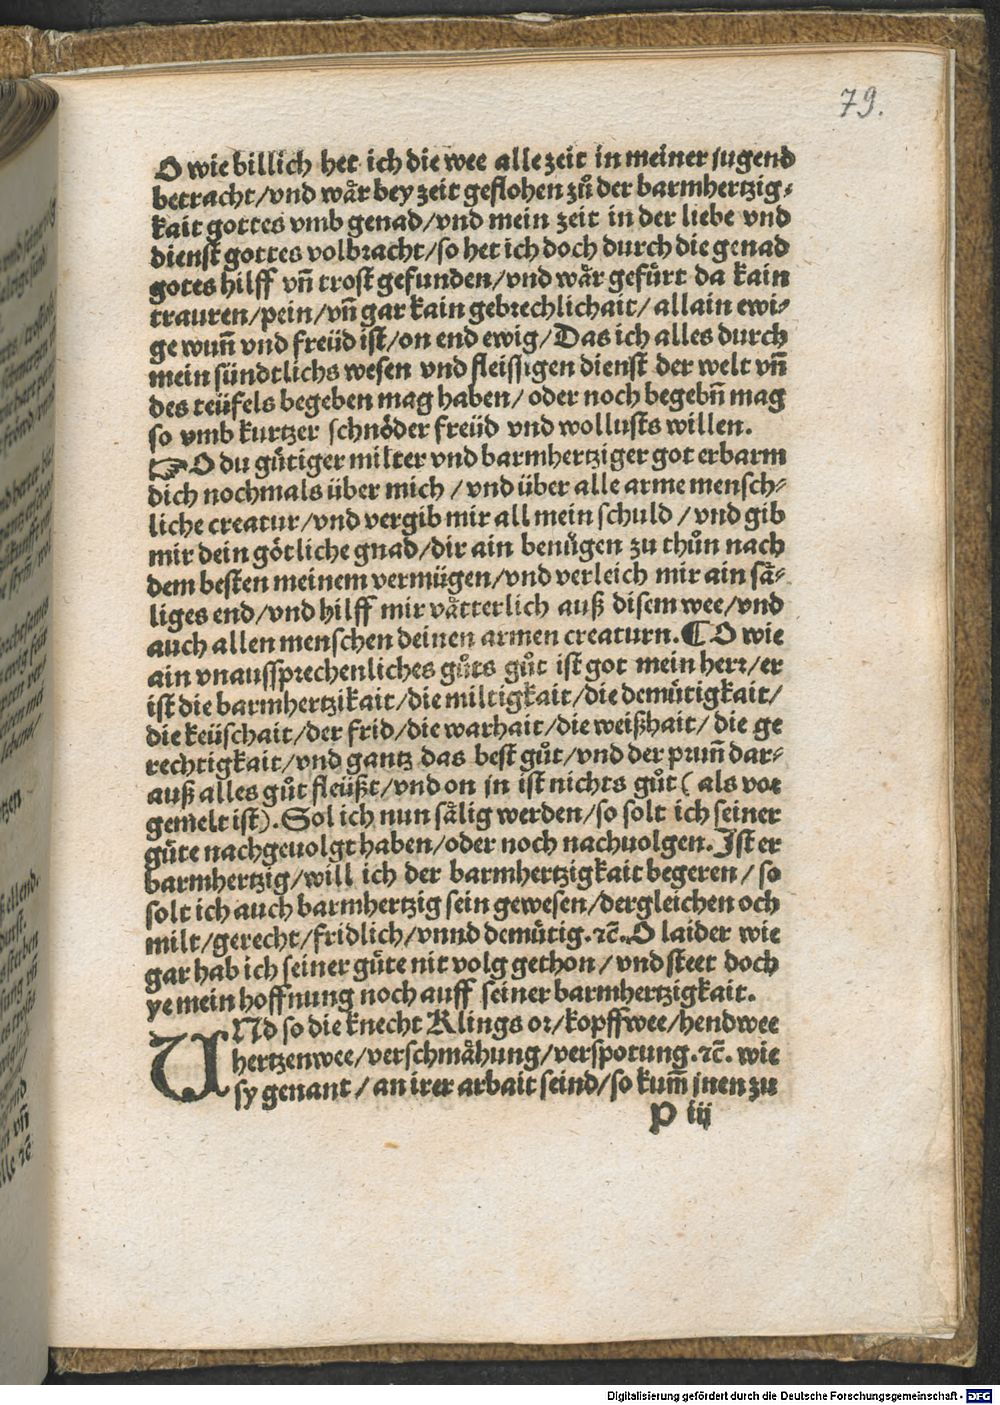 79.
O wie billich het ich die wee alle zeit in meiner jugend
betracht/vnd wår bey zeit geflohen zů der barmhertzig⸗
kait gottes vmb genad/vnd mein zeit in der liebe vnd
dienst gottes volbracht/so het ich doch durch die genad
gotes hilff vñ trost gefunden/vnd wår gefůrt da kain
trauren/pein/vñ gar kain gebrechlichait/ allain ewi⸗
ge wuñ vnd freüd ist/on end ewig/Das ich alles durch
mein sündtlichs wesen vnd fleissigen dienst der welt vñ
des teüfels begeben mag haben/ oder noch begebñ mag
so vmb kurtzer schnöder freüd vnd wollusts willen.
☞O du gůtiger milter vnd barmhertziger got erbarm
dich nochmals über mich /vnd über alle arme mensch⸗
liche creatur/vnd vergib mir all mein schuld /vnd gib
mir dein götliche gnad/dir ain benůgen zu thůn nach
dem besten meinem vermügen/vnd verleich mir ain så⸗
liges end/vnd hilff mir våtterlich auß disem wee/vnd
auch allen menschen deinen armen creaturn.¶ O wie
ain vnaussprechenliches gůts gůt ist got mein herr/er
ist die barmhertzikait/die miltigkait/die demůtigkait/
die keüschait/der frid/die warhait/die weißhait/ die ge
rechtigkait/vnd gantz das best gůt/vnd der prunn dar⸗
auß alles gůt fleüßt/vnd on jn ist nichts gůt ( als vor
gemelt ist). Sol ich nun sålig werden/so solt ich seiner
gůte nachgeuolgt haben/oder noch nachuolgen. Ist er
barmhertzig/will ich der barmhertzigkait begeren/ so
solt ich auch barmhertzig sein gewesen/dergleichen och
milt/gerecht/fridlich/vnnd demůtig.⁊c̃. O laider wie
gar hab ich seiner gůte nit volg gethon/vnd steet doch
ye mein hoffnung noch auff seiner barmhertzigkait.
VNd so die knecht Klings or/kopffwee/hendwee
hertzenwee/verschmåhung/verspotung.⁊c̃. wie
sy genant/ an irer arbait seind/so kum̃ jnen zu
P iij
ellend.
vñ
Digitalisierung gefördert durch die Deutsche Forschungsgemeinschaft - DFG